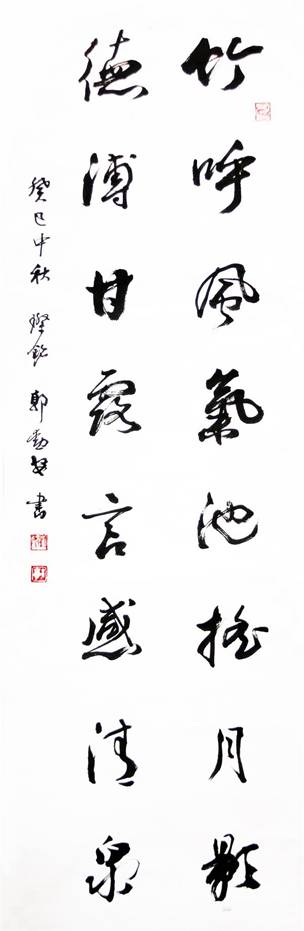 竹呼風氣池搖月影
德溥甘露言感清泉
癸巳中秋 銘 郭 書